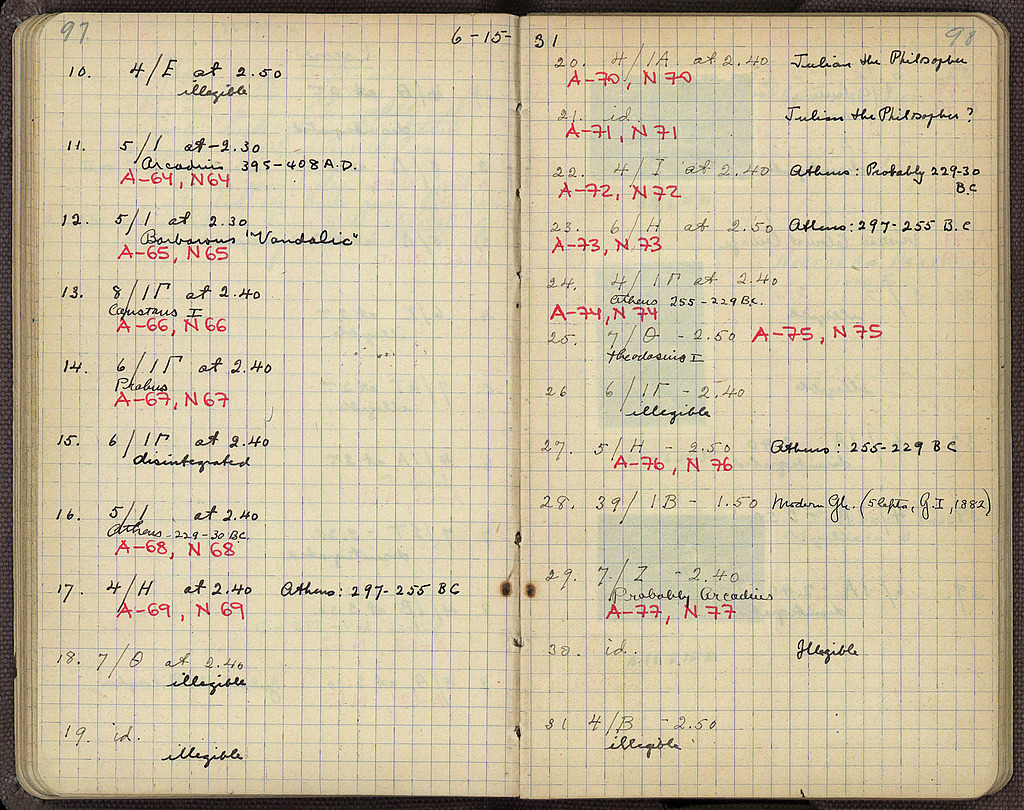 97
6-15-31
98
10. 4/E at 2.50
illegible
11. 5/1 at -2.30
Arcadius 395-408 A.D.
A-64, N64
12. 5/1 at 2.30
Barbarous "Vandalic"
A-65, N65
13. 8/1Γ at 2.40
Constans I
A-66, N66
14. 6/1Γ at 2.40
Probus
A-67, N67
15. 6/1Γ at 2.40
disintegrated
16. 5/1 at 2.40
Athens -229-30 BC.
A-68, N68
17. 4/H at 2.40 Athens: 297-255 BC
A-69, N69
18. 7/Θ at 2.40
illegible
19. id.
illegible
20. 4/1A at 2.40 Julian the Philosopher
A-70, N70
21. id. Julian the Philosopher?
A-71, N71
22. 4/I at 2.40 Athens: Probably 229-30
B.C
A-72, N72
23. 6/H at 2.50 Athens: 297-255 B.C
A-73, N73
24. 4/1Γ at 2.40
Athens 255-229 B.C.
A-74, N74
25. 7/Θ - 2.50 A-75, N75
Theodosius I
26 6/1Γ - 2.40
illegible
27. 5/H - 2.50 Athens: 255-229 BC
A-76, N76
28. 39/1B - 1.50 Modern Gk. (5 lepta, G.I, 1882)
29. 7/Z - 2.40
Probably Arcadius
A-77, N77
30. id. Illegible
31 4/B - 2.50
illegible